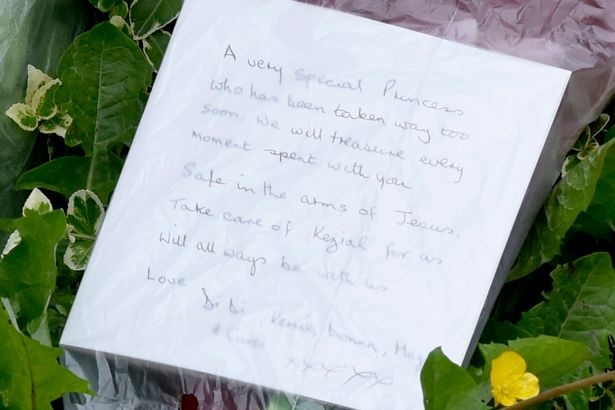 A very special Princess
who has been taken way too
soon. We will treasure every
moment spent with you
Safe in the arms of Jesus.
Take care of Keziah for as
Will all ways be with us
Love Di Di Donna,
xxxxxx